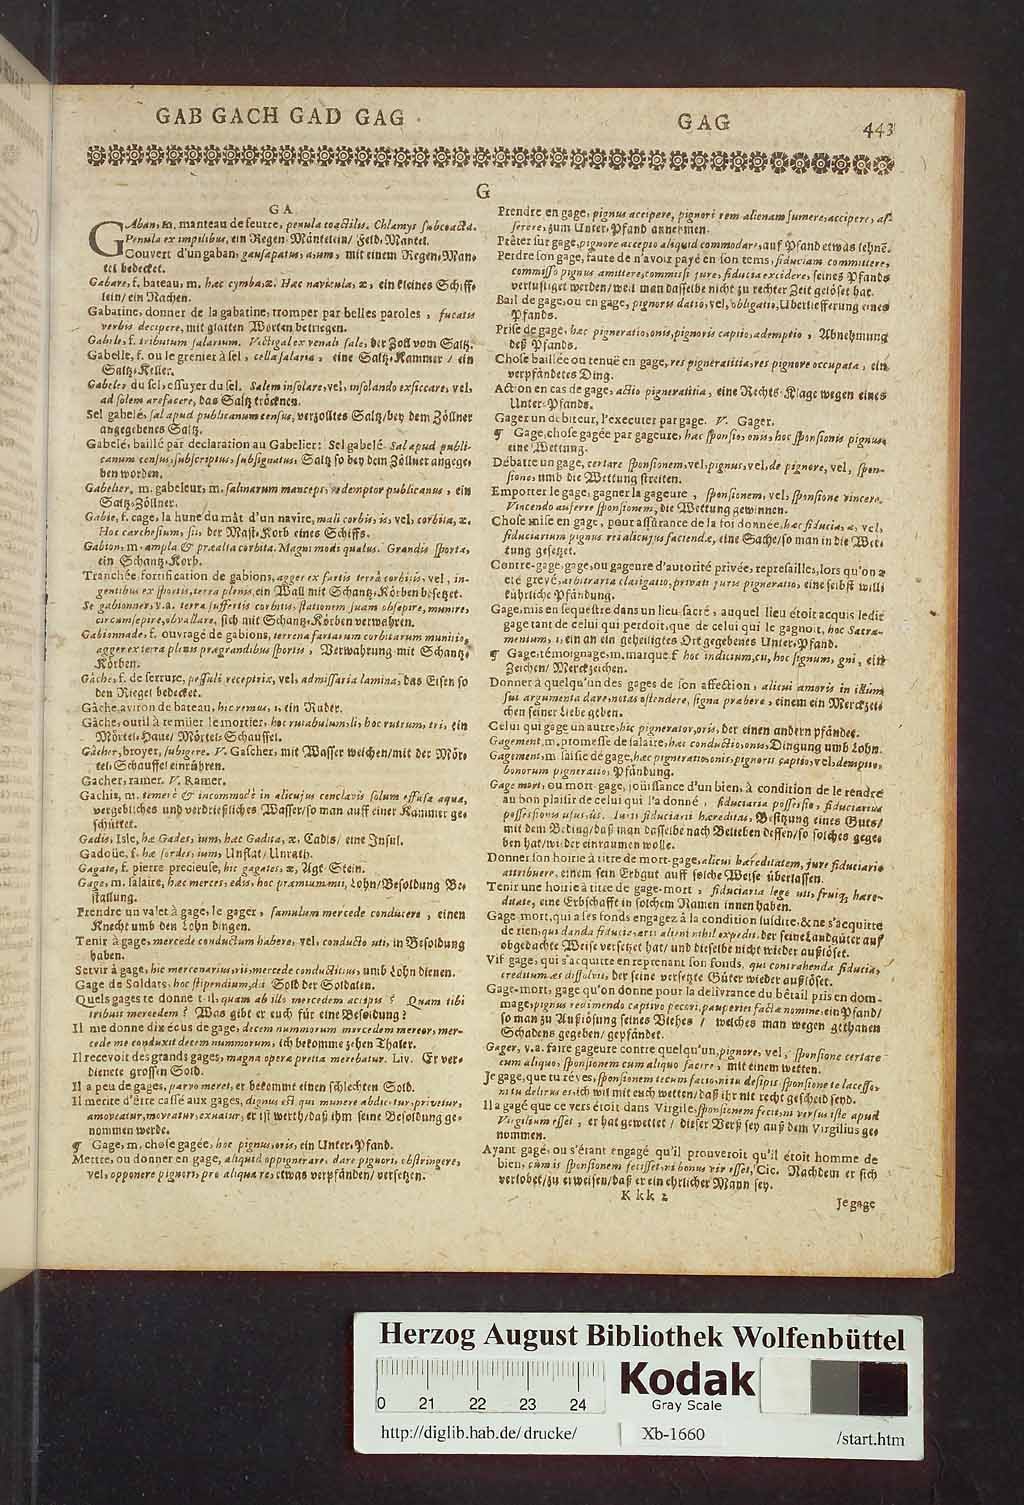 GAB GACH GAD GAG
GAG
443
G
GA
GAban, m. manteau de feutre, penula coactilis. Chlamys subcoacta.
Penula ex impilibus, ein Regen-Mäntelein/ Feld-Mantel.
Couvert d'un gaban, gausapatus, a, um, mit einem Regen-Man-
tel bedecket.
Gabare, f. bateau, m. hæc cymba, æ. Hæc navicula, æ, ein kleines Schiff-
lein/ ein Nachen.
Gabatine, donner de la gabatine, tromper par belles paroles, fucatis
verbis decipere, mit glatten Worten betriegen.
Gabele, f. tributum salarium. Vectigal ex venali sale, der Zoll vom Saltz.
Gabelle, f. ou le grenier à sel, cella salaria, eine Saltz-Kammer / ein
Saltz-Keller.
Gabeler du sel, essuyer du sel. Salem insolare, vel, insolando exsiccare, vel,
ad solem arefacere, das Saltz tröcknen.
Sel gabelé, sal apud publicanum census, verzolltes Saltz/ bey dem Zöllner
angegebenes Saltz.
Gabelé, baillé par declaration au Gabelier: Sel gabelé. Sal apud publi-
canum census, subscriptus, subsignatus, Saltz so bey dem Zöllner angege-
ben worden.
Gabelier, m. gabeleur, m. salinarum manceps, redemptor publicanus, ein
Saltz-Zöllner.
Gabie, f. cage, la hune du mât d'un navire, mali corbis, is, vel, corbita, æ.
Hoc carchesium, sii, der Mast-Korb eines Schiffs.
Gabion, m. ampla & præalta corbita. Magni modi qualus. Grandis sporta,
ein Schantz-Korb.
Tranchée, fortification de gabions, agger ex fartis terrâ corbitis, vel, in-
gentibus ex sportis, terra plenis, ein Wall mit Schantz-Körben besetzet.
Se gabionner, v.a. terra suffertis corbitis, stationem suam obsepire, munire,
circumsepire, obvallare, sich mit Schantz-Körben verwahren.
Gabionnade, f. ouvrage de gabions, terrena fartarum corbitarum munitio,
agger ex terra plenis prægrandibus sportis, Verwahrung mit Schantz-
Körben.
Gâche, f. de serrure, pessuli receptrix, vel, admissaria lamina, das Eisen so
den Riegel bedecket.
Gâche, aviron de bateau, hic remus, i, ein Ruder.
Gâche, outil à remüer le mortier, hoc rutabulum, li, hoc rutrum, tri, ein
Mörtel-Haue/ Mörtel-Schauffel.
Gâcher, broyer, subigere. V. Gascher, mit Wasser weichen/ mit der Mör-
tel-Schauffel einrühren.
Gacher, ramer. V. Ramer.
Gachis, m. temerè & incommodè in alicujus conclavis solum effusa aqua,
vergebliches und verdrießliches Wasser/ so man auff einer Kammer ge-
schüttet.
Gadis, Isle, hæ Gades, ium, hæc Gadita, æ, Cadis/ eine Insul.
Gadoüe, f. hæ sordes, ium, Unflat/ Unrath.
Gagate, f. pierre precieuse, hic gagates, æ, Agt-Stein.
Gage, m. salaire, hæc merces, edis, hoc præmium, mii, Lohn/ Besoldung Be-
stallung.
Prendre un valet à gage, le gager, famulum mercede conducere, einen
Knecht umb den Lohn dingen.
Tenir à gage, mercede conductum habere, vel, conducto uti, in Besoldung
haben.
Servir à gage, hic mercenarius, rii, mercede conductitius, umb Lohn dienen.
Gage de Soldats, hoc stipendium, dii Sold der Soldaten.
Quels gages te donne t-il, quam ab illo mercedem accipis? Quam tibi
tribuit mercedem? Was gibt er euch für eine Besoldung?
Il me donne dix écus de gage, decem nummorum mercedem mereor, mer-
cede me conduxit decem nummorum, ich bekomme zehen Thaler.
Il recevoit des grands gages, magna operæ pretia merebatur. Liv. Er ver-
dienete grossen Sold.
Il a peu de gages, parvo meret, er bekommt einen schlechten Sold.
Il merite d'être cassé aux gages, dignus est qui munere abdicetur, privetur,
amoveatur, moveatur, exuatur, er ist werth/ daß ihm seine Besoldung ge-
nommen werde.
¶ Gage, m. chose gagée, hoc pignus, oris, ein Unter-Pfand.
Mettre, ou donner en gage, aliquid oppignerare, dare pignori, obstringere,
vel, opponere pignori, pro aliqua re, etwas verpfänden/ versetzen.
Prendre en gage, pignus accipere, pignori rem alienam sumere, accipere, as-
serere, zum Unter-Pfand annehmen.
Prêter sur gage, pignore accepto aliquid commodare, auf Pfand etwas lehnē.
Perdre son gage, faute de n'avoir payé en son tems, fiduciam committere,
commisso pignus amittere, commissi jure, fiducia excidere, seines Pfands
verlustiget werden/ weil man dasselbe nicht zu rechter Zeit gelöset hat.
Bail de gage, ou en gage, pignoris datio, vel, obligatio, Uberlieferung eines
Pfands.
Prise de gage, hæc pigneratio, onis, pignoris captio, ademptio, Abnehmung
deß Pfands.
Chose baillée ou tenuë en gage, res pigneratitia, res pignore occupata, ein
verpfändetes Ding.
Action en cas de gage, actio pigneratitia, eine Rechts-Klage wegen eines
Unter-Pfands.
Gager un debiteur, l'executer par gage. V. Gager.
¶ Gage, chose gagée par gageure, hæc sponsio, onis, hoc sponsionis pignus,
eine Wettung.
Débatre un gage, certare sponsionem, vel, pignus, vel, de pignore, vel, spon-
sione, umb die Wettung streiten.
Emporter le gage, gagner la gageure, sponsionem, vel, sponsione vincere.
Vincendo auferre sponsionem, die Wettung gewinnen.
Chose mise en gage, pour assûrance de la foi donnée, hæc fiducia, æ, vel,
fiduciarium pignus rei alicujus faciendæ, eine Sache/ so man in die Wet-
tung gesetzet.
Contre-gage, gage, ou gageure d'autorité privée, represailles, lors qu'on a
eté grevé, arbitraria clarigatio, privati juris pigneratio, eine selbst willi
kührliche Pfändung.
Gage, mis en sequestre dans un lieu sacré, auquel lieu étoit acquis le dit
gage tant de celui qui perdoit, que de celui qui le gagnoit, hoc Sacra-
mentum, i, ein an ein geheiligtes Ort gegebenes Unter-Pfand.
¶ Gage, témoignage, m. marque f. hoc indicium, cii, hoc signum, gni, ein
Zeichen/ Merckzeichen.
Donner à quelqu'un des gages de son affection, alicui amoris in illum
sui argumenta dare, notas ostendere, signa præbere, einem ein Merckzei-
chen seiner Liebe geben.
Celui qui gage un autre, hic pignerator, oris, der einen andern pfändet.
Gagement, m. promesse de salaire, hæc conductio, onis, Dingung umb Lohn.
Gagement, m saisie de gage, hæc pigneratio, onis, pignoris captio, vel, demptio,
bonorum pigneratio, Pfändung.
Gage mort, ou mort-gage, joüissance d'un bien, à condition de le rendre
au bon plaisir de celui qui l'a donné, fiduciaria possessio, fiduciarius
possessionis usus, ûs. Juris fiduciarii hæreditas, Besitzung eines Guts/
mit dem Beding/ daß man dasselbe nach Belieben dessen/ so solches gege-
ben hat/ wider einraumen wolle.
Donner son hoirie à titre de mort-gage, alicui hæreditatem, jure fiduciario
attribuere, einem sein Erbgut auff solche Weise überlassen.
Tenir une hoirie à titre de gage-mort, fiduciaria lege uti, frui, hære-
ditate, eine Erbschaffe in solchem Namen innen haben.
Gage-mort, qui a ses fonds engagez à la condition susdite, & ne s'acquitte
de rien, qui danda fiducia, æris alieni nihil expedit, der seine Landgüter auf
obgedachte Weise versetzet hat/ und dieselbe nicht wieder außlöset.
Vif gage, qui s'acquitte en reprenant son fonds, qui contrahenda fiducia,
creditum æs dissolvit, der seine versetzte Güter wieder außlöset.
Gage-mort, gage qu'on donne pour la delivrance du bêtail pris en dom-
mage, pignus redimendo captivo pecori, pauperiei factæ nomine, ein Pfand/
so man zu Außlösung seines Viehes / welches man wegen gethanen
Schadens gegeben/ gepfändet.
Gager, v.a. faire gageure contre quelqu'un, pignore, vel, sponsione certare
cum aliquo, sponsionem cum aliquo facere, mit einem wetten.
Je gage, que tu rêves, sponsionem tecum facio, ni tu desipis sponsione te lacesso,
ni tu deliras es, ich wil mit euch wetten/ daß ihr nit recht gescheid seyd.
Il a gagé que ce vers étoit dans Virgile, sponsionem fecit, ni versus iste apud
Virgilium esset, er hat gewettet / dieser Verß sey auß dem Virgilius ge-
nommen.
Ayant gagé, ou s'étant engagé qu'il prouveroit qu'il étoit homme de
bien, cùm is sponsionem fecisset, ni bonus vir esset, Cic. Nachdem er sich
verlobet/ zu erweisen/ daß er ein ehrlicher Mann sey.
Kkk 2
Je gage
Herzog August Bibliothek Wolfenbüttel
0 21 22 23 24
Kodak
Gray Scale
http://diglib.hab.de/drucke/
Xb-1660
/start.htm